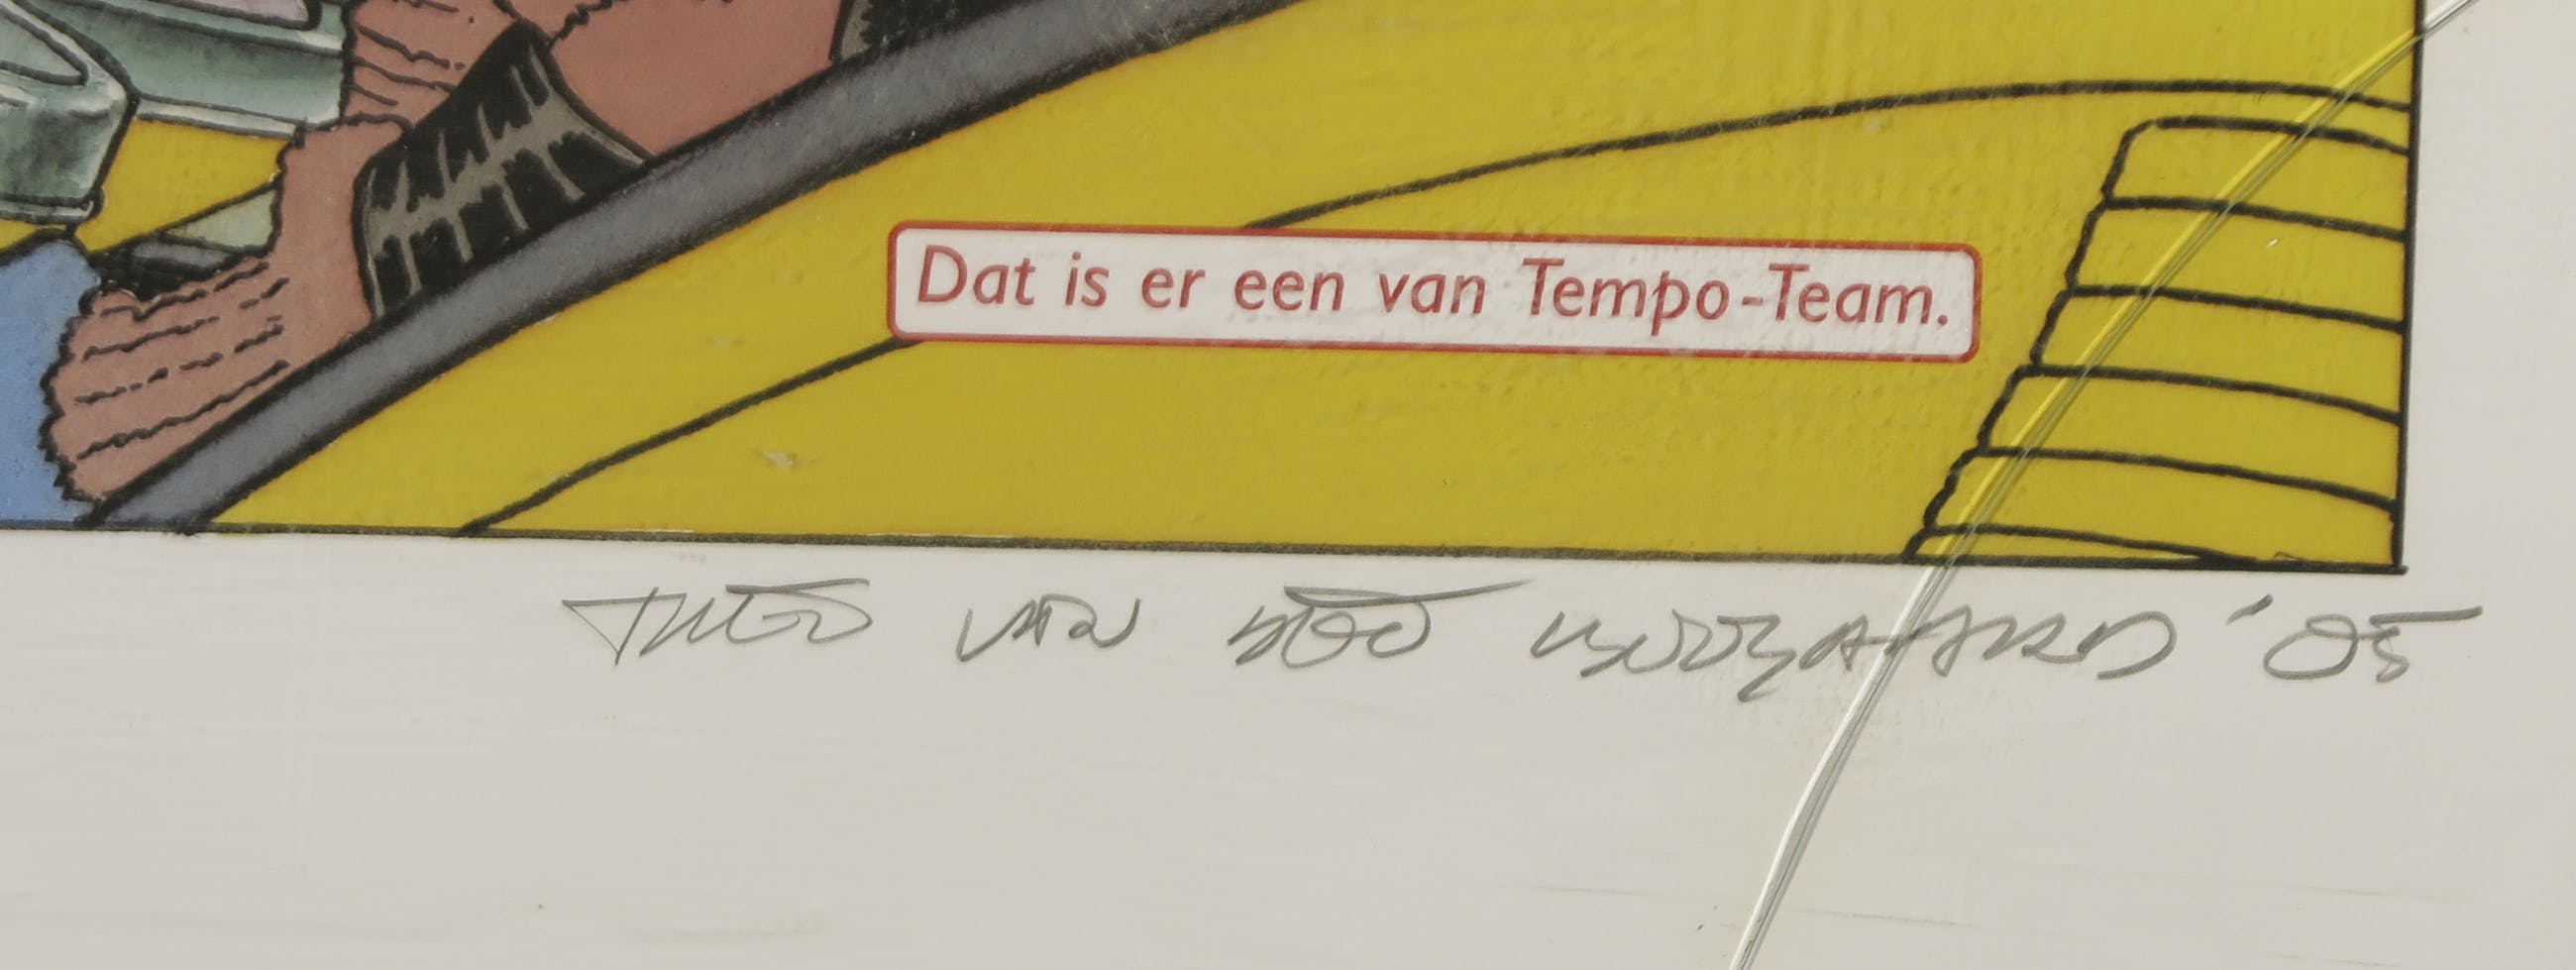 Dat is er een van Tempo-Team.
THEO VAN DEN BOOGAARD '05